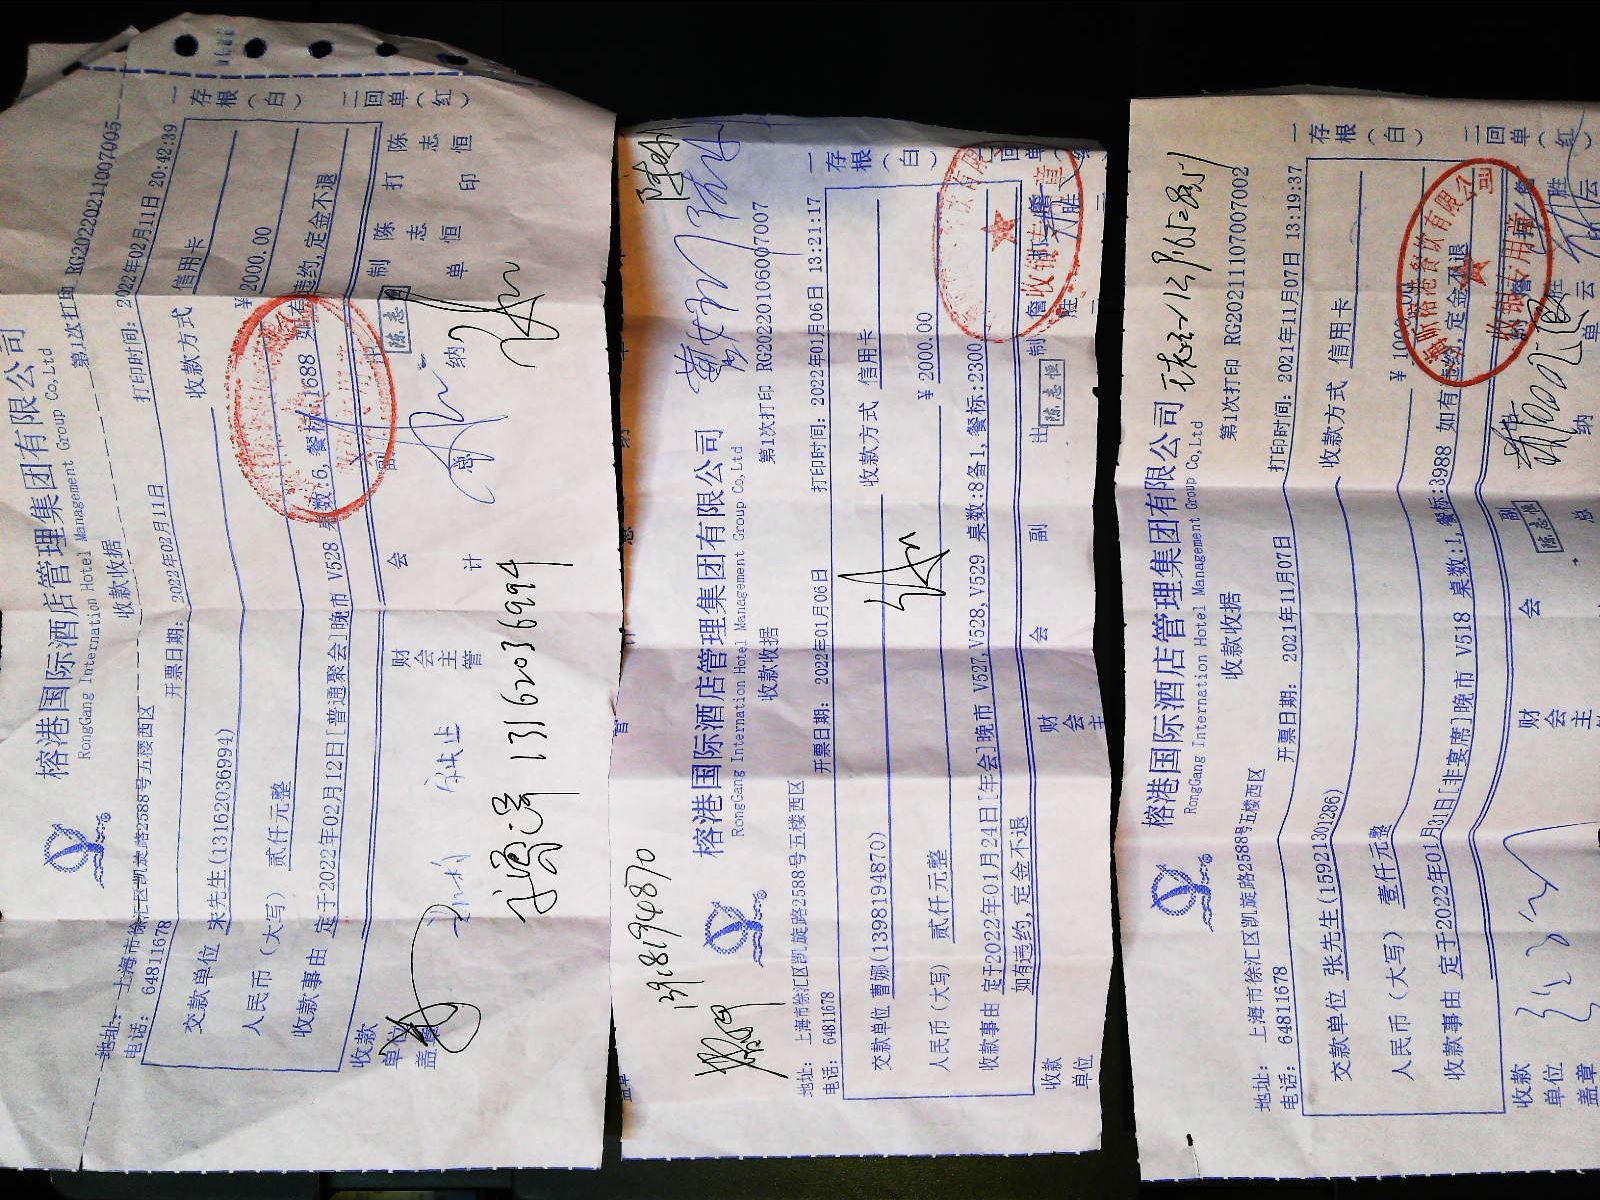 榕港国际酒店管理集团有限公司
RongGang International Hotel Management Group Co,Ltd
收款收据
第1次打印 RG20220211007005
地址: 上海市徐汇区凯旋路2588号五楼西区
电话: 64811678
开票日期: 2022年02月11日
打印时间: 2022年02月11日 20:42:39
交款单位 宋先生(13162036994)
收款方式 信用卡
人民币(大写) 贰仟元整
¥ 2000.00
收款事由 定于2022年02月12日[普通聚会]晚市 V528 桌数:6, 餐标:1688 如有违约,定金不退
一存根(白)
二回单(红)
收款单位盖章
财会主管
会计
出纳
制单 陈志恒
打印 陈志恒
陈志恒
13162036994
榕港国际酒店管理集团有限公司
RongGang International Hotel Management Group Co,Ltd
收款收据
第1次打印 RG20220106007007
地址: 上海市徐汇区凯旋路2588号五楼西区
电话: 64811678
开票日期: 2022年01月06日
打印时间: 2022年01月06日 13:21:17
交款单位 曹娜(1398194870)
收款方式 信用卡
人民币(大写) 贰仟元整
¥ 2000.00
收款事由 定于2022年01月24日[年会]晚市 V527,V528,V529 桌数:8备1, 餐标:2300
如有违约,定金不退
一存根(白)
二回单(红)
收款单位
财会主
会
副
出
制
陈志恒
1398194870
榕港国际酒店管理集团有限公司
RongGang International Hotel Management Group Co,Ltd
收款收据
第1次打印 RG20211107007002
地址: 上海市徐汇区凯旋路2588号五楼西区
电话: 64811678
开票日期: 2021年11月07日
打印时间: 2021年11月07日 13:19:37
交款单位 张先生(15921301286)
收款方式 信用卡
人民币(大写) 壹仟元整
收款事由 定于2022年01月31日[非宴席]晚市 V518 桌数:1, 餐标:3988 如有违约,定金不退
一存根(白)
二回单(红)
收款单位盖章
财会主
会
副总
纳
单
陈志恒